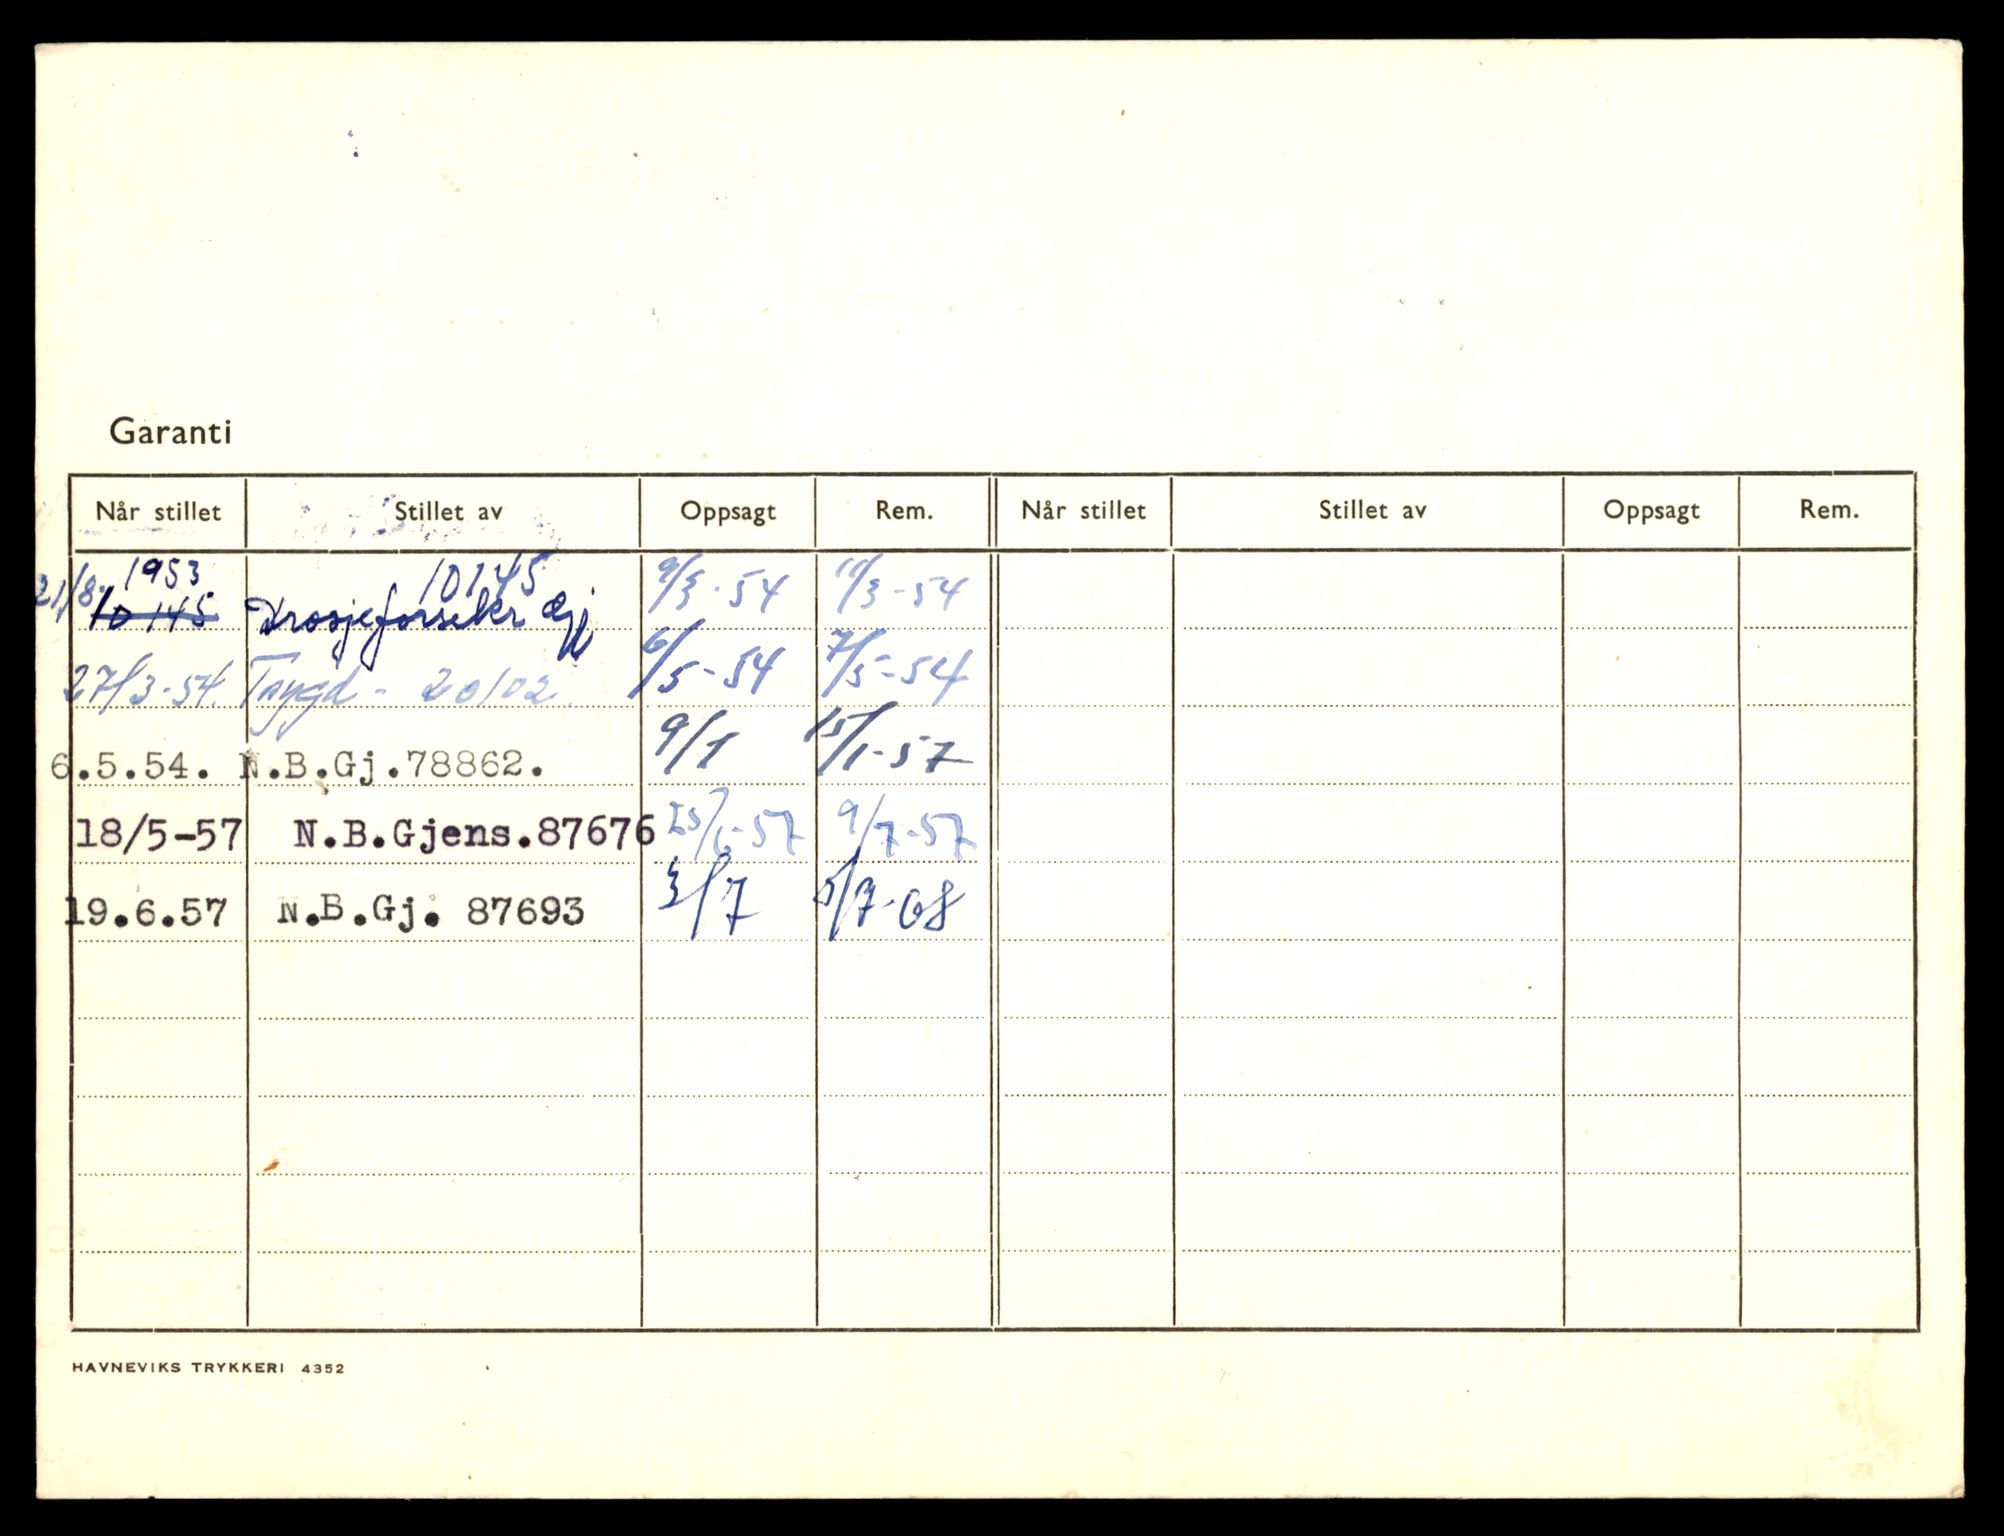 Garanti
Når stillet Stillet av Oppsagt Rem. Når stillet Stillet av Oppsagt Rem.
21/8. 1953 10145 9/3-54 11/3-54
10145 Drosjeforsikr
27/3-54. Trygd - 20102. 6/5-54 7/5-54
6.5.54. N.B.Gj.78862. 9/1 15/1-57
18/5-57 N.B.Gjens.87676 25/6-57 9/7-57
19.6.57 N.B.Gj. 87693 3/7 5/7-68
HAVNEVIKS TRYKKERI 4352